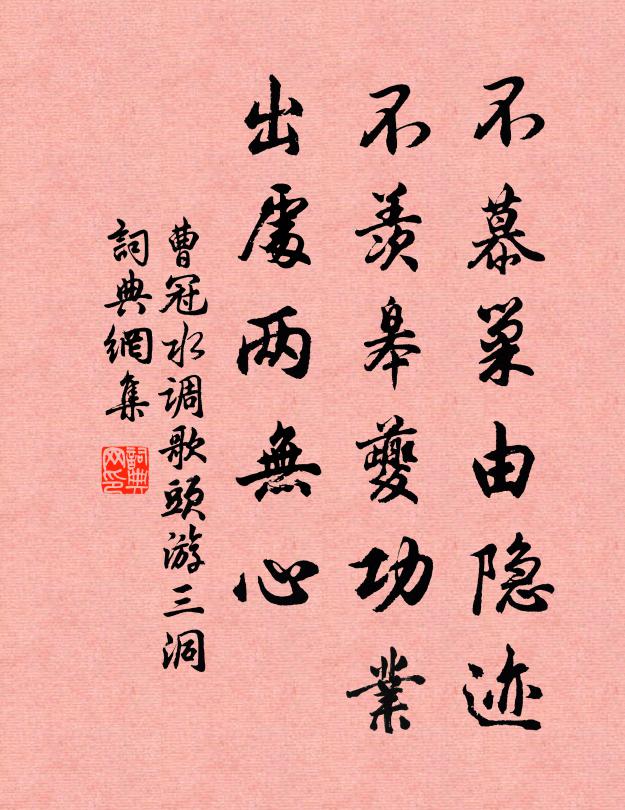 不慕巢由隐迹
不羡皋夔功業
出處两無心
曹冠水调歌頭游三洞
詞典網集
詞典网印